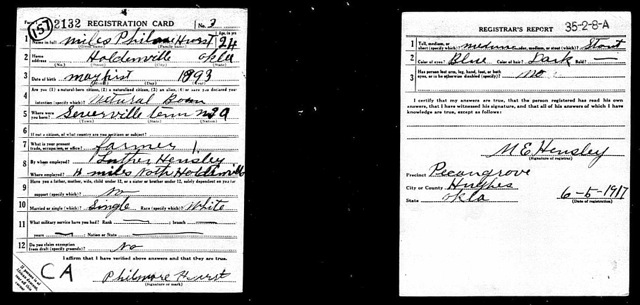 Form 1 2132 REGISTRATION CARD No. 3
157
1 Name in full Miles Philmore Hurst 24 Age, in yrs.
(Given name) (Family name)
2 Home address Holdenville Okla
(No.) (Street) (City) (State)
3 Date of birth May first 1893
(Month) (Day) (Year)
4 Are you (1) a natural-born citizen, (2) a naturalized citizen, (3) an alien, (4) or have you declared your
intention (specify which)? Natural Born
5 Where were you born? Sevierville Tenn USA
(Town) (State) (Nation)
6 If not a citizen, of what country are you a citizen or subject?
7 What is your present trade, occupation, or office? Farmer
8 By whom employed? Luther Hensley
Where employed? miles North Holdenville
9 Have you a father, mother, wife, child under 12, or a sister or brother under 12, solely dependent on you for
support (specify which)? No
10 Married or single (which)? Single Race (specify which)? White
11 What military service have you had? Rank — ; branch —
years — ; Nation or State —
12 Do you claim exemption from draft (specify grounds)? No
I affirm that I have verified above answers and that they are true.
CA
Philmore Hurst
(Signature or mark)
REGISTRAR'S REPORT 35-2-8-A
1 Tall, medium, or short (specify which)? medium Slender, medium, or stout (which)? Stout
2 Color of eyes? Blue Color of hair? Dark Bald? —
3 Has person lost arm, leg, hand, foot, or both eyes, or is he otherwise disabled (specify)? No
I certify that my answers are true, that the person registered has read his own
answers, that I have witnessed his signature, and that all of his answers of which I have
knowledge are true, except as follows:
M E Hensley
(Signature of registrar)
Precinct Pecangrove
City or County Hughes
State Okla 6-5-1917
(Date of registration)